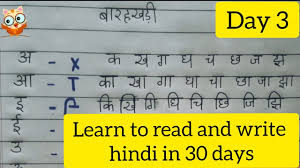 बारहखड़ी
Day 3
अ - x क ख ग घ च छ ज झ
आ - ा का खा गा घा चा छा जा झा
इ - ि कि खि गि घि चि छि जि झि
ई
उ
Learn to read and write
hindi in 30 days